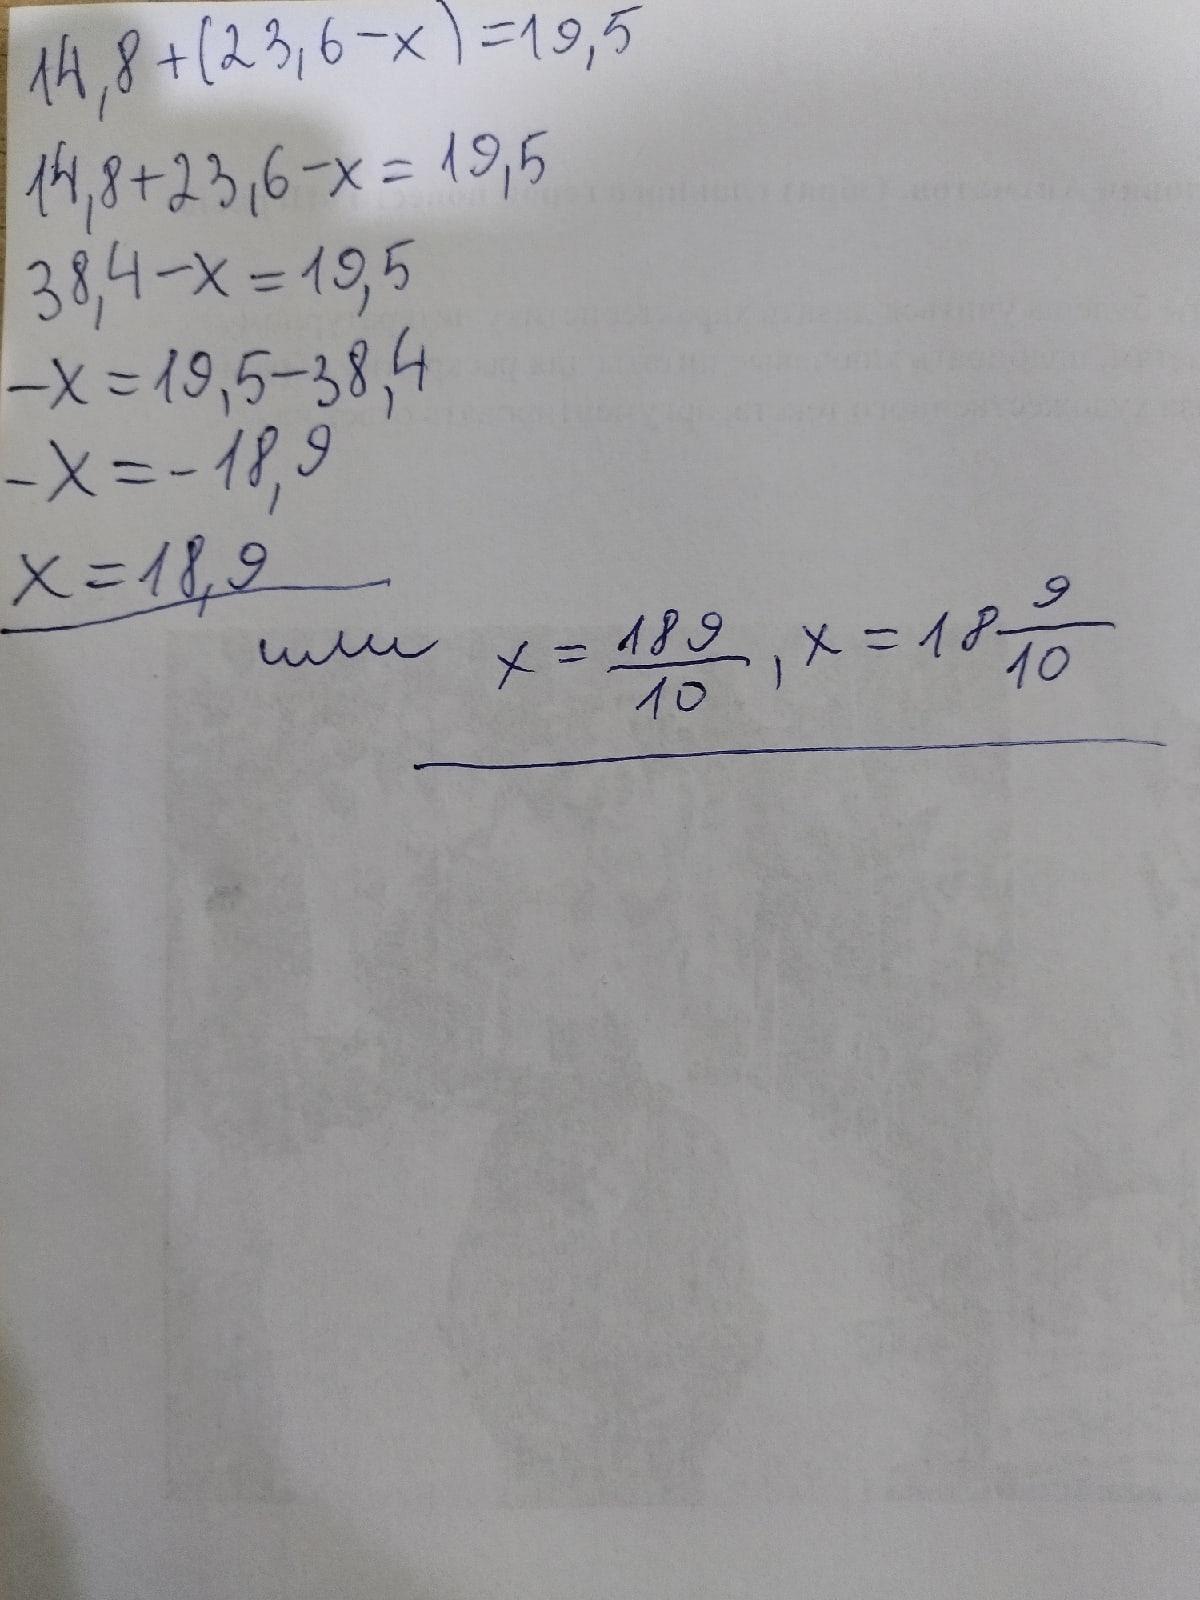 14,8+(23,6-x)=19,5
14,8+23,6-x=19,5
38,4-x=19,5
-x=19,5-38,4
-x=-18,9
x=18,9
или x=189/10, x=18 9/10